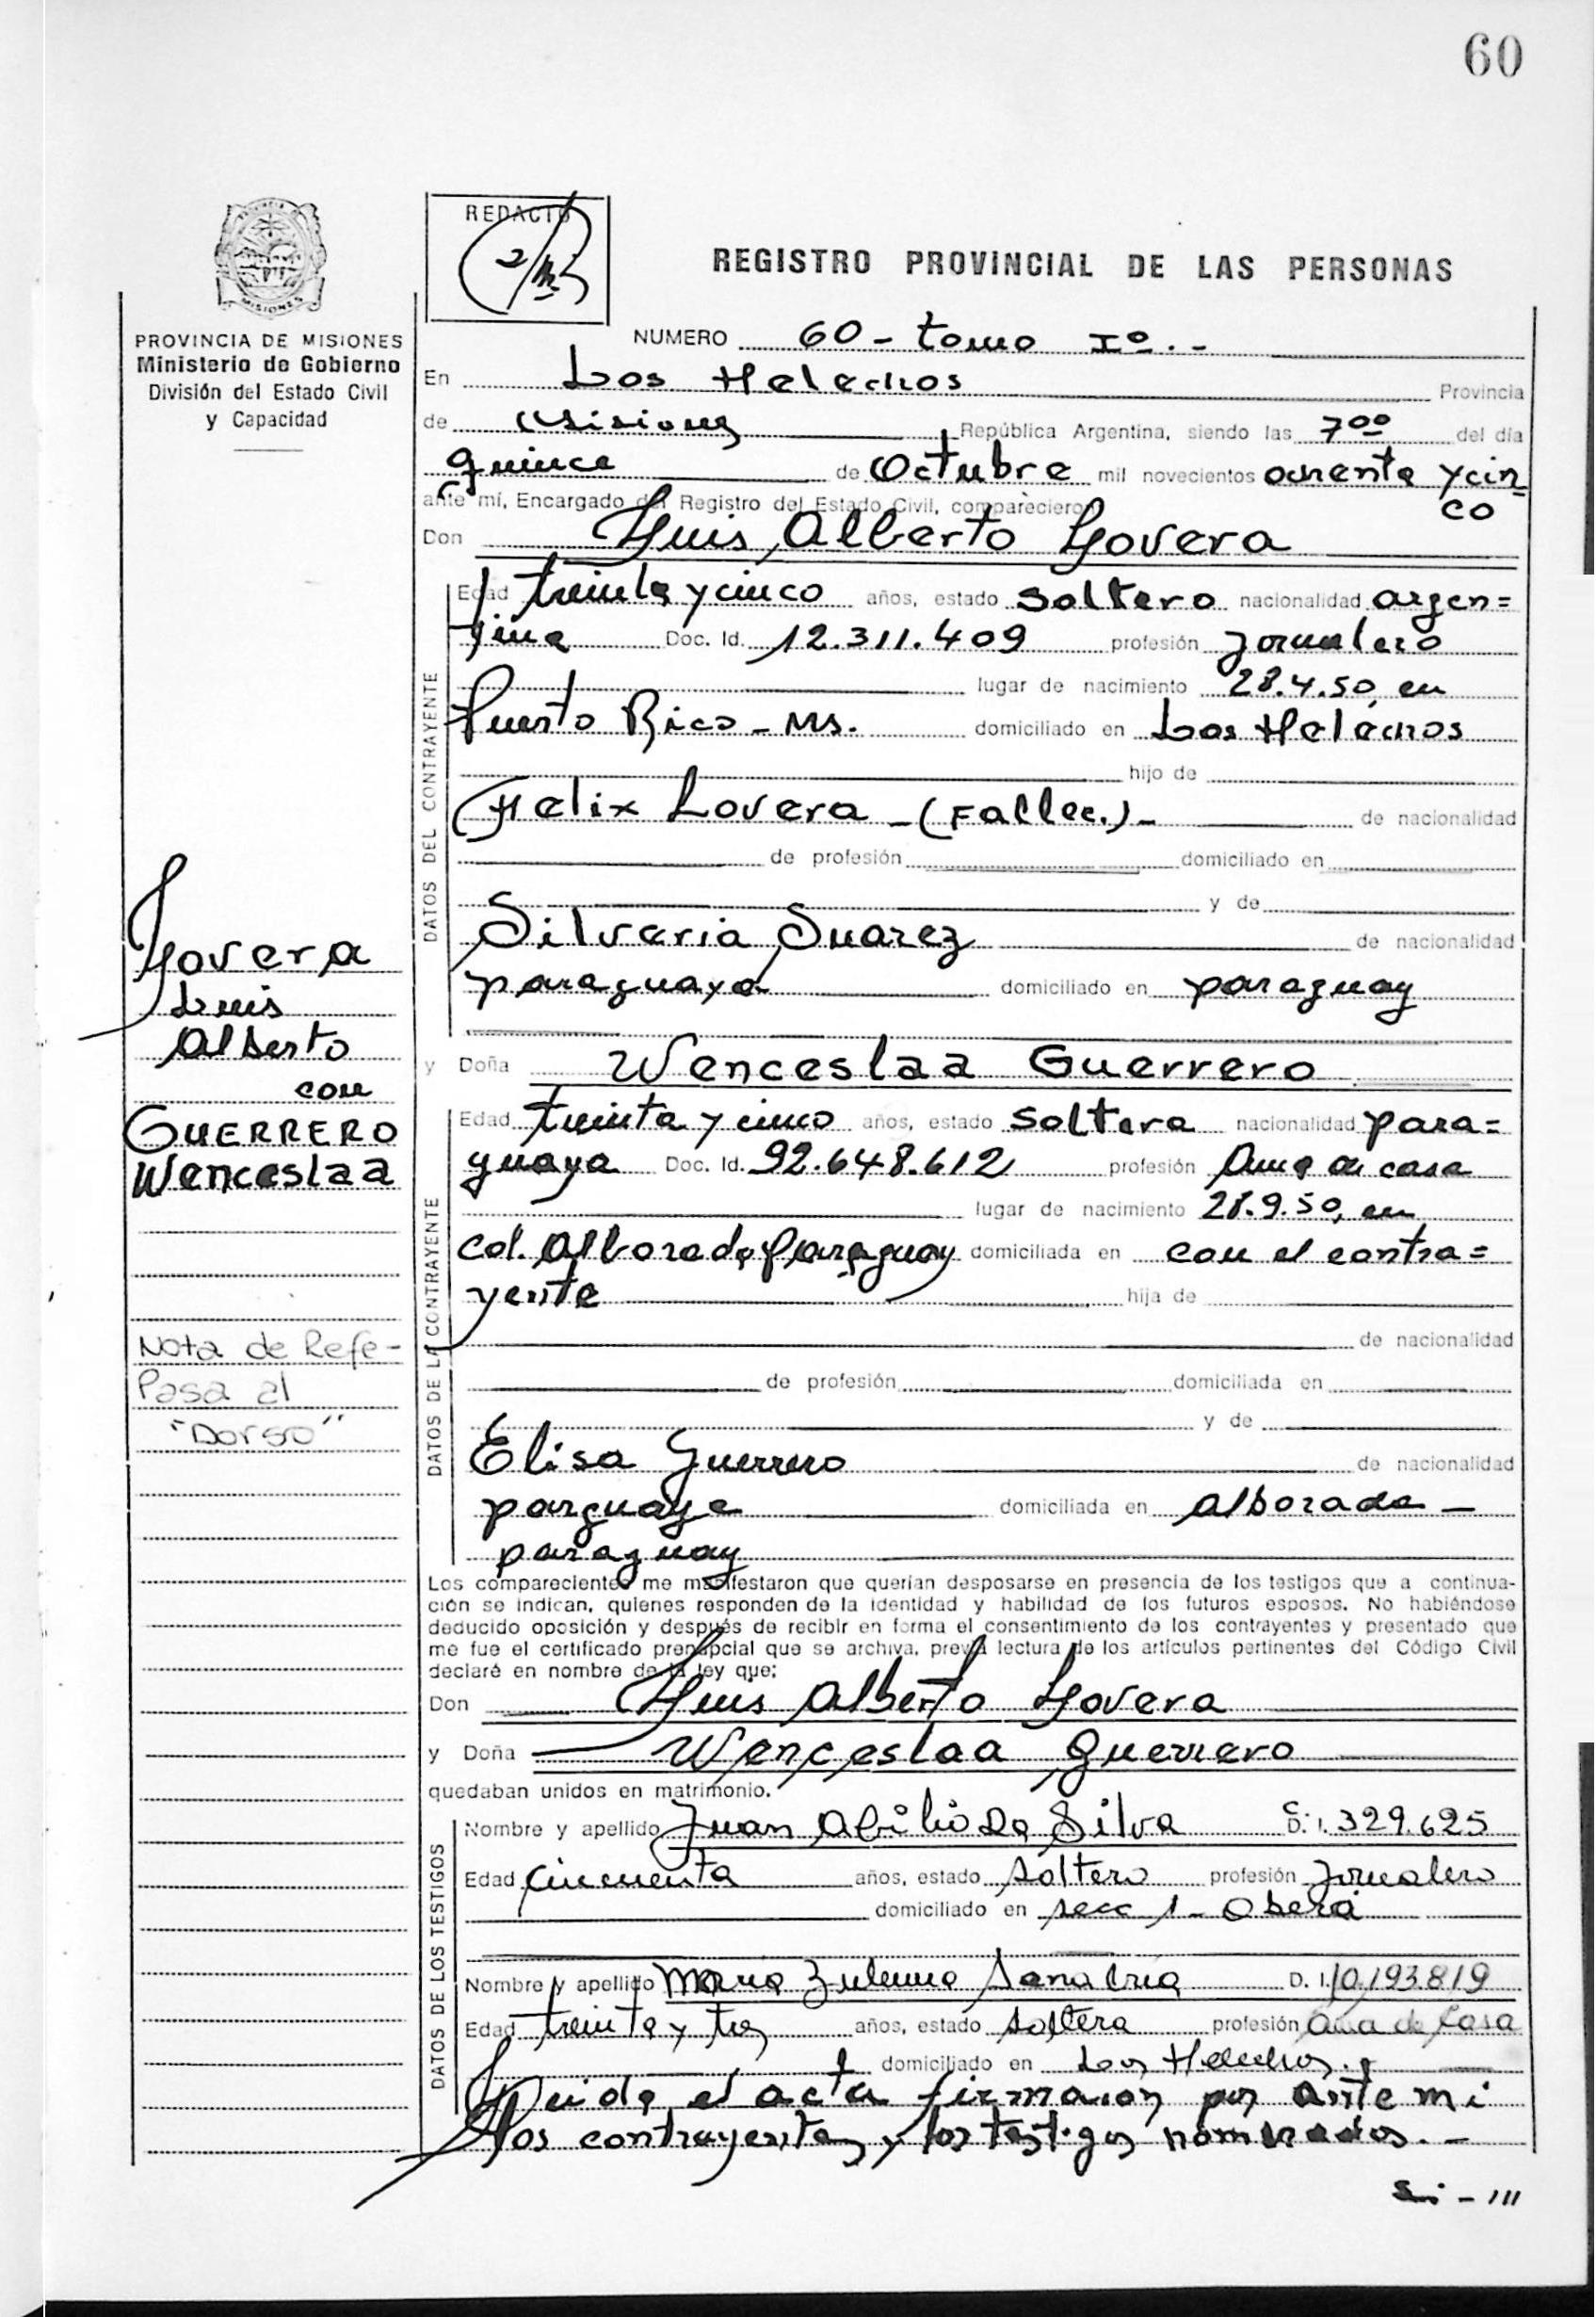 60
REDACTO
REGISTRO PROVINCIAL DE LAS PERSONAS
MISIONES
PROVINCIA DE MISIONES
Ministerio de Gobierno
División del Estado Civil
y Capacidad
NUMERO 60 - tomo Iº. -
En Los Helechos Provincia
de Misiones República Argentina, siendo las 7⁰⁰ del día
quince de Octubre mil novecientos ochenta y cin=
co
ante mí, Encargado del Registro del Estado Civil, comparecieron
Don Luis Alberto Lovera
DATOS DEL CONTRAYENTE
Edad treinta y cinco años, estado Soltero nacionalidad argen=
tina Doc. Id. 12.311.409 profesión Jornalero
lugar de nacimiento 28.4.50, en
Puerto Rico - Ms. domiciliado en Los Helechos
hijo de
Felix Lovera - (Fallec.) - de nacionalidad
de profesión domiciliado en
y de
Silveria Suarez de nacionalidad
paraguaya domiciliado en paraguay
y Doña Wenceslaa Guerrero
DATOS DE LA CONTRAYENTE
Edad treinta y cinco años, estado Soltera nacionalidad para=
guaya Doc. Id. 92.648.612 profesión Ama de casa
lugar de nacimiento 28.9.50, en
Col. Alborada, paraguay domiciliada en con el contra=
yente hija de
de nacionalidad
de profesión domiciliada en
y de
Elisa Guerrero de nacionalidad
parguaya domiciliada en Alborada -
paraguay
Lovera
Luis
Alberto
con
GUERRERO
Wenceslaa
Nota de Refe-
Pasa al
"Dorso"
Los comparecientes me manifestaron que querían desposarse en presencia de los testigos que a continua-
ción se indican, quienes responden de la identidad y habilidad de los futuros esposos. No habiéndose
deducido oposición y después de recibir en forma el consentimiento de los contrayentes y presentado que
me fue el certificado prenupcial que se archiva, previa lectura de los artículos pertinentes del Código Civil
declaré en nombre de la ley que:
Don Luis Alberto Lovera
y Doña Wenceslaa Guerrero
quedaban unidos en matrimonio.
DATOS DE LOS TESTIGOS
Nombre y apellido Juan Abilio Da Silva 329.625
Edad cincuenta años, estado soltero profesión Jornalero
domiciliado en secc 1 - Oberá
Nombre y apellido Maria Zulema Sanabria D. I. 10.193.819
Edad treinta y tres años, estado soltera profesión Ama de Casa
domiciliado en Los Helechos.
Leida el acta firmaron por ante mi
los contrayentes y los testigos nombrados. -